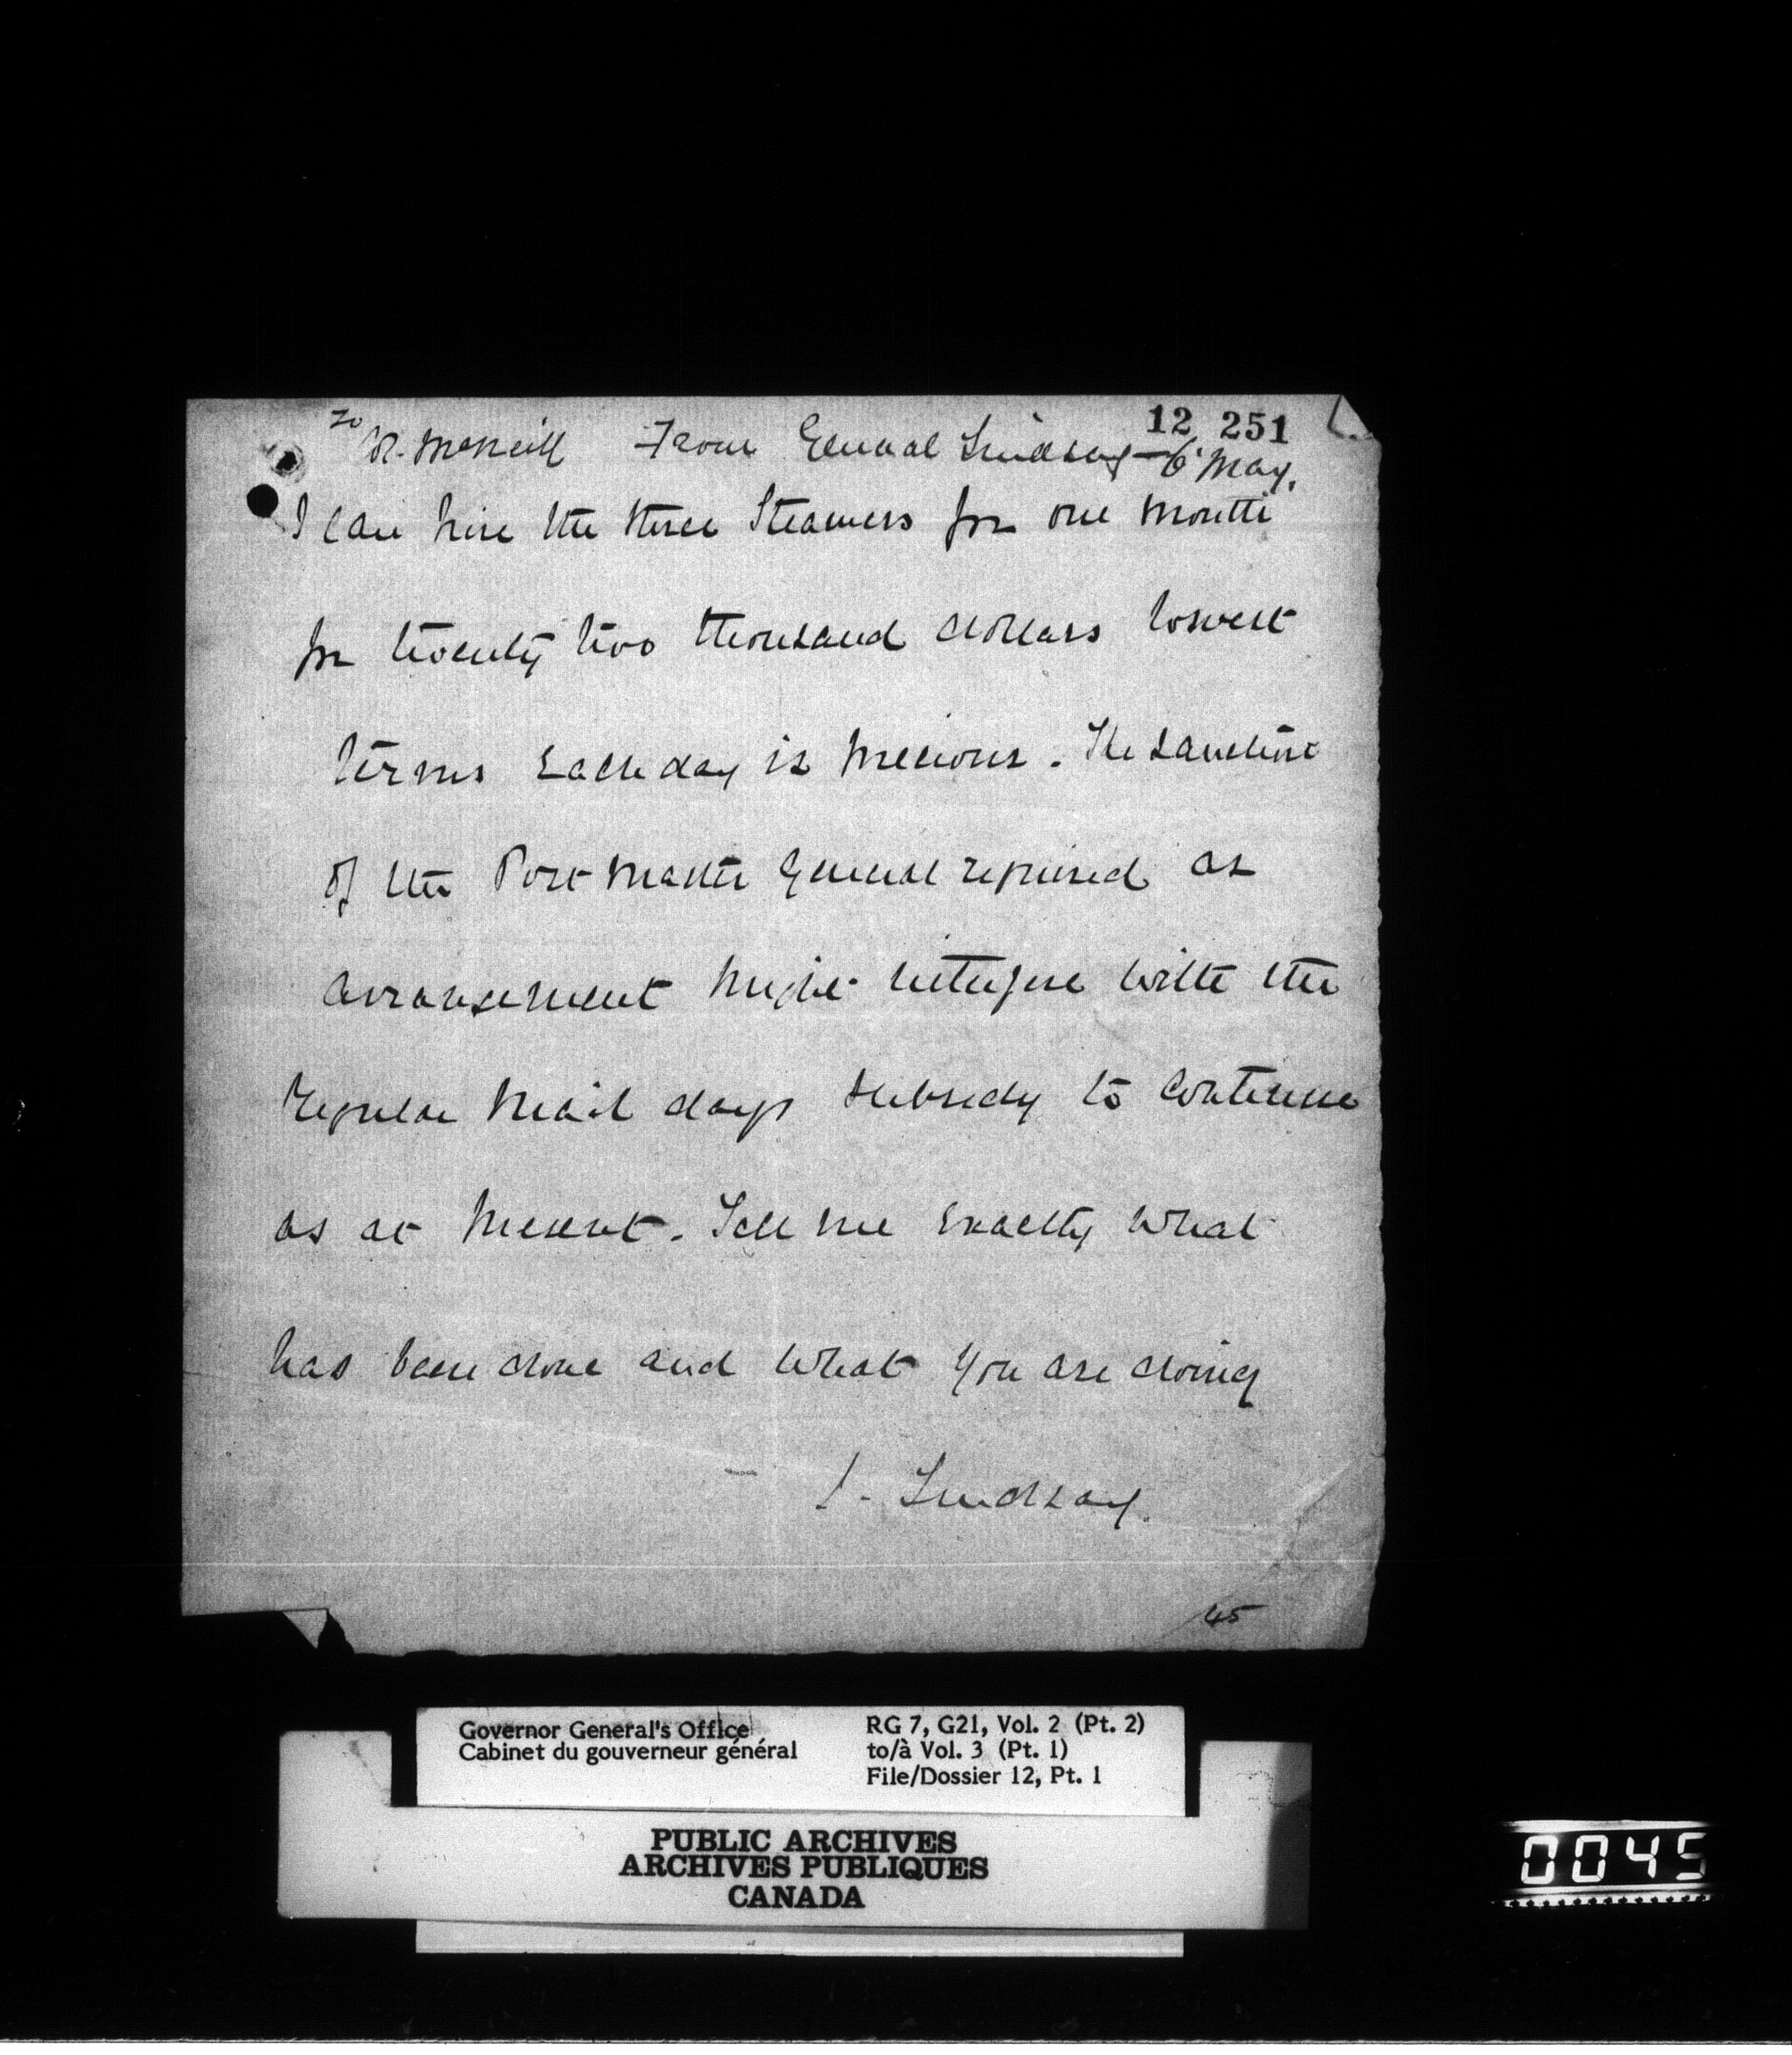 12 251
To Col. McNeill From General Lindsay — 6 May.
I can hire the three Steamers for one month
for twenty two thousand dollars lowest
terms Each day is precious. The Sanction
of the Post Master General required as
arrangement might interfere with the
regular mail days subsidy to continue
as at present. Tell me Exactly what
has been done and what you are doing
J. Lindsay.
45
Governor General's Office
Cabinet du gouverneur général
RG 7, G21, Vol. 2 (Pt. 2)
to/à Vol. 3 (Pt. 1)
File/Dossier 12, Pt. 1
PUBLIC ARCHIVES
ARCHIVES PUBLIQUES
CANADA
0045